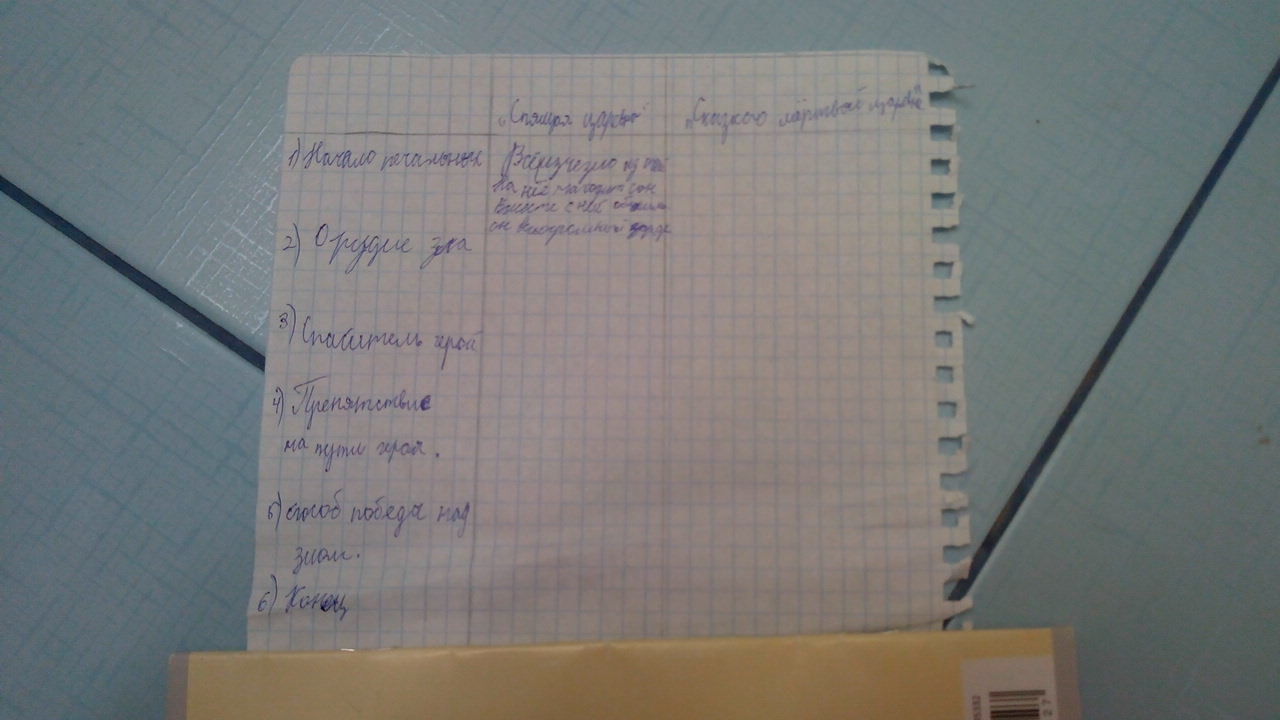 „Спящая царевна" „Сказка о мёртвой царевне"
1) Начало печальных Всё исчезло из
На неё находит сон
Вместе с ней объемлет
он весь огромный царя
2) Орудие зла
3) Спаситель герой
4) Препятствие
на пути героя.
5) способ победы над
злом.
6) Конец
27